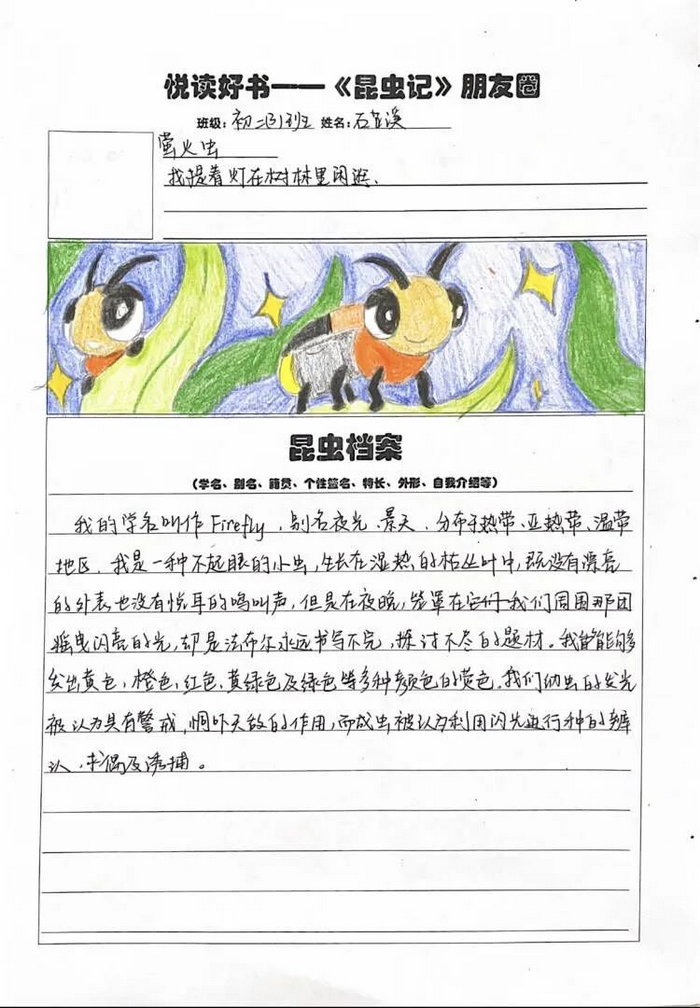 悦读好书——《昆虫记》朋友圈
班级: 初二(3)班 姓名: 石 溪
萤火虫
我提着灯在树林里闲逛、
昆虫档案
(学名、别名、籍贯、个性签名、特长、外形、自我介绍等)
我的学名叫作Firefly,别名夜光、景天、分布于热带、亚热带、温带
地区、我是一种不起眼的小虫,生长在湿热的枯丛叶中,既没有漂亮
的外表也没有悦耳的鸣叫声,但是在夜晚,笼罩在它们我们周围那团
摇曳闪亮的光,却是法布尔永远书写不完,探讨不尽的题材。我能能够
发出黄色、橙色、红色、黄绿色及绿色等多种颜色的荧色。我们幼虫的发光
被认为具有警戒,恫吓天敌的作用,而成虫被认为利用闪光进行种的辨
认、求偶及诱捕。